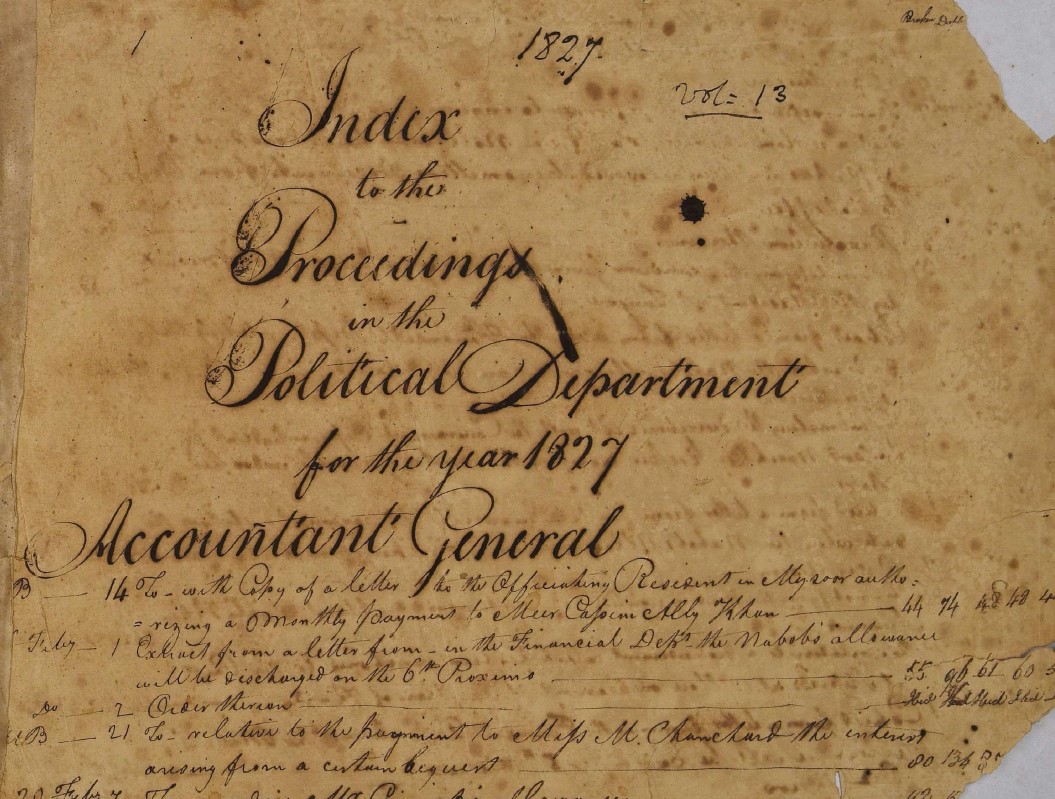 1
1827
Vol= 13
Index
to the
Proceedings
in the
Political Department
for the year 1827
Accountant General
B — 14 To - with Copy of a letter to the Officiating Resident in Mysoor autho=
=rizing a Monthly payment to Meer Cassim Ally Khan — 44 74 48 48
Feby — 1 Extract from a letter from - in the Financial Dept. the Nabob's allowance
will be discharged on the 6th Proximo — 55 96 61 60
Do — 2 Order thereon — Ibid Ibid Ibid Ibid
B — 21 To - relative to the payment to Miss M. Chanchard the interest
arising from a certain bequest — 80 134
20 Feby